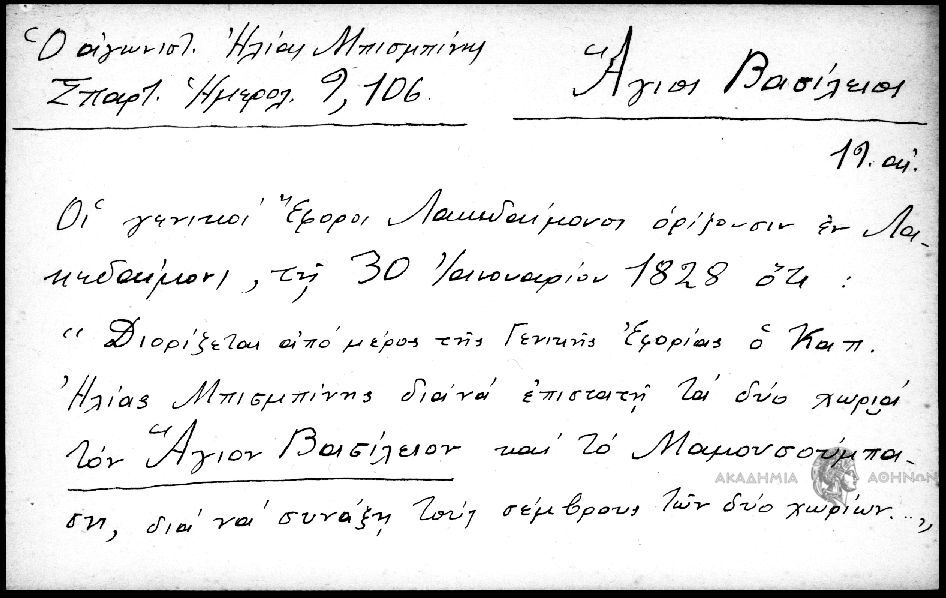 Ὁ ἀγωνιστ. Ἠλίας Μπισμπίνης
Σπαρτ. Ἡμερολ. 9, 106.
Ἅγιος Βασίλειος
19. αἰ.
Οἱ γενικοί Ἔφοροι Λακεδαίμονος ὁρίζουσιν ἐν Λα-
κεδαίμονι, τῇ 30 Ἰανουαρίου 1828 ὅτι :
“ Διορίζεται ἀπό μέρος τῆς Γενικῆς Ἐφορίας ὁ Καπ.
Ἠλίας Μπισμπίνης διά νά ἐπιστατῇ τά δύο χωριά
τόν Ἅγιον Βασίλειον καί τό Μαμουσούμπα-
ση, διά νά συνάξῃ τούς σέμβρους τῶν δύο χωρίων...„
ΑΚΑΔΗΜΙΑ ΑΘΗΝΩΝ